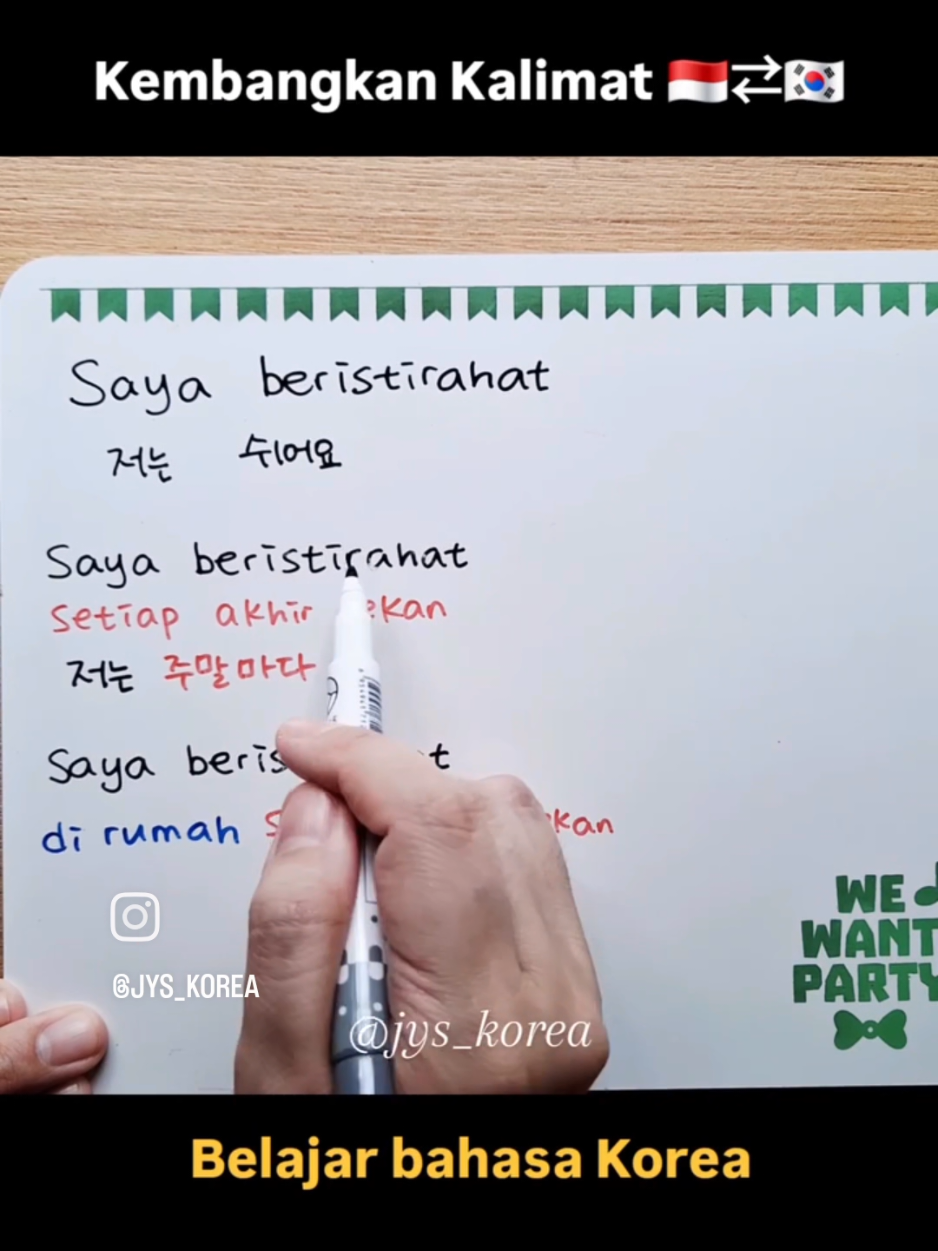 Kembangkan Kalimat 🇮🇩⇄🇰🇷
Saya beristirahat
저는 쉬어요
Saya beristirahat
setiap akhir
저는 주말마다
Saya
di rumah
WE
WANT
PARTY
@JYS_KOREA
@jys_korea
Belajar bahasa Korea